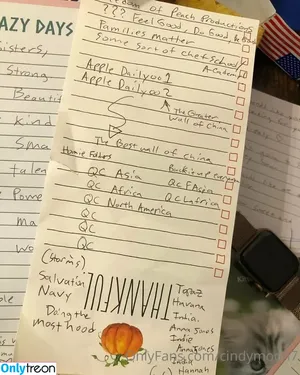 AZY DAYS
Sisters,
Strong
Beauti
Kind
Sma
talen
Powe
ma
wo
om of Peach Productions
??? Feel Good, Do Good,
Families Matter
Some sort of chef School
Academ
Apple Daily001
Apple Daily002
The Greater
Wall of China
The Best wall of China
QC Asia
QC Africa
QC North America
QC
QC
QC
(storms)
Salvation
Navy
Doing the
most hood
THANKFUL
Topaz
Havana
India
Anna Jones
Indie
Anna Jones
Hannah
Onlytreon
OnlyFans.com/cindymod